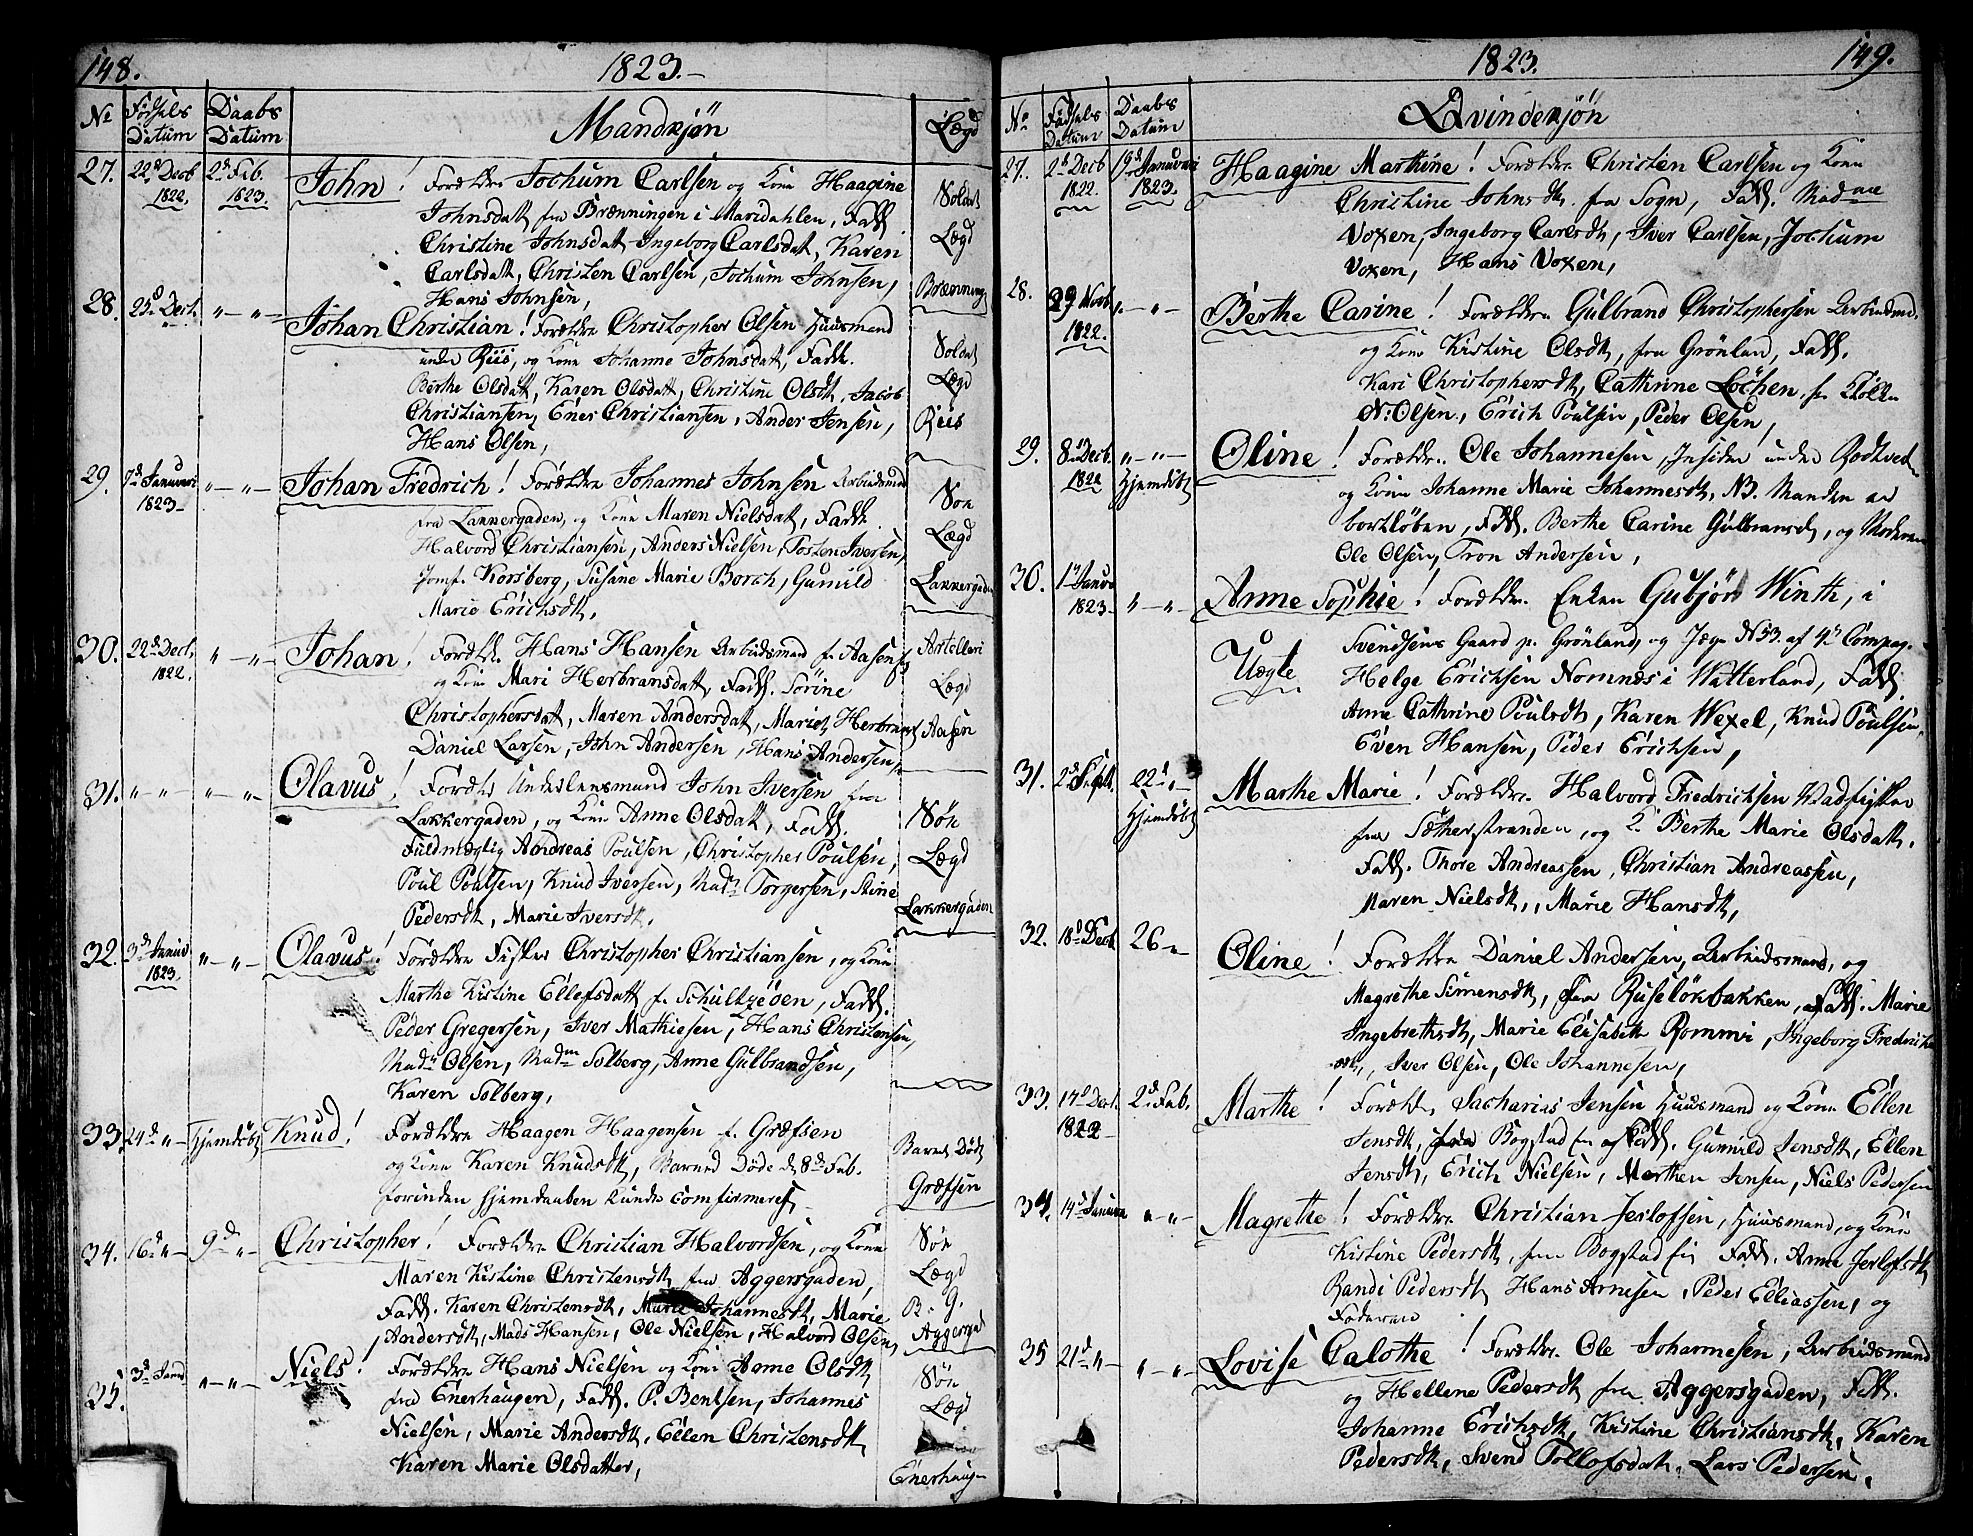 148.
1823.
№ Fødsels Datum Daabs Datum Mandkjøn Lægd
27. 22de Decb 1822. 2de Feb. 1823. John! Forældre Jochum Carlsen og Kone Haagine
Johnsdatt, fra Brænningen i Maridahlen, Fadd.
Christine Johnsdatt, Ingeborg Carlsdat, Karen
Carlsdatt, Christen Carlsen, Jochum Johnsen,
Hans Johnsen,
Soldat
Lægd
Brænning
28. 25de Decb. " — " — Johan Christian! Forældre Christopher Olsen Huusmand
under Riis, og Kone Johanne Johnsdat, Fadd.
Berthe Olsdatt, Karen Olsdatt, Christine Olsdt, Jacob
Christiansen, Ener Christiansen, Ander Jensen,
Hans Olsen,
Soldat
Lægd
Riis
29. 7de Januari 1823 " — " — Johan Fredrich! Forældre Johannes Johnsen Arbeidsmd
fra Lakkergaden, og Kone Maren Nielsdat, Fadd.
Halvord Christiansen, Anders Nielsen, Tosten Iversen,
Jomf. Korsberg, Susane Marie Borch, Gunild
Marie Erichsdt,
Søe
Lægd
Lakkergaden
30. 22de Decb, 1822. " — " — Johan! Foreld. Hans Hansen Arbeidsmand f. Aasen
og Kone Mari Herbransdatt, Fadd. Sørine
Christophersdat, Maren Andersdatt, Marie Herbrans
Daniel Larsen, John Andersen, Hans Andersen,
Artelleri
Lægd
Aasen
31. " — " " — " — Olavus! Foreldre Underlensmand John Iversen fra
Lakkergaden, og Kone Anne Olsdatt, Fadd.
Fuldmæglig Andreas Poulsen, Christopher Poulsen,
Poul Poulsen, Knud Iversen, Madm Torgersen, Stine
Pedersdt, Marie Iversdt.
Søn
Lægd
Lakkergaden
32. 3de Januar 1823. " — " — Olavus! Forældre Fisker Christopher Christiansen, og Kone
Marthe Kistine Ellefsdatt f. Schultzeöen, Fadd.
Peder Gregersen, Iver Mathiesen, Hans Christensen,
Madm Olsen, Madm Solberg, Anne Gulbrandsen,
Karen Solberg,
33. 24de " — Hjemdøbt Knud! Forældre Haagen Haagensen f. Græfsen
og Kone Karen Knudsdt, Barned Døde d. 8de Feb.
forinden Hjemdaaben kunde comfirmeres
Barnet Død
Græfsen
34. 16de " — 9de " — Christopher! Forældre Christian Halvordsen, og Kone
Maren Kistine Christensdt, fra Aggersgaden,
Fadd. Karen Christensdt, Marie Johannesdt, Marie
Andersdt, Mads Hansen, Ole Nielsen, Halvord Olsen
Søn
Lægd
B. G.
Aggersgad
35. 3de Janud " — " — Niels! Forældre Hans Nielsen og Kone Anne Olsdt
fra Enerhaugen, Fadd. P. Bentsen, Johannes
Nielsen, Marie Andersdt, Ellen Christensdt
Karen Marie Olsdatter,
Søn
Lægd
Enerhaug
1823.
149.
No Fødsels Datum Daabs Datum Qvindekjön
27. 2de Decb 1822. 19de Januari 1823. Haagine Marthine! Forældre Christen Carlsen og Kone
Christine Johnsdt. fra Sogn, Fadd. Madme
Voxen, Ingeborg Carlsdt, Iver Carlsen, Jochum
Voxen, Hans Voxen,
28. 29 Novb 1822. " — " — Berthe Carine! Forældre Gülbrand Christophersen Arbeidsmd.
og Kone Kistine Olsdt, fra Grönland, Fadd.
Kari Christophersdt, Cathrine Lochen,
N: Olsen, Erich Poulsen, Peder Olsen,
29. 8de Decb. 1822 " — " — Hjemdöbt Oline! Forældre Ole Johannesen, Insider under Rodtvedt
og Kone Johanne Marie Johannesdt, NB. Manden er
bortlöben, Fadd. Berthe Carine Gülbransdt, og Moderen
Ole Olsen, Tron Andersen,
30. 1de Janua 1823 " — " — Anne Sophie! Foreldre. Enken Gubjör Winth, i
Uægte
Svendsens Gaard p. Grönland, og Jæger N 53. af 4de Compag.
Helge Erichsen Nomnæs i Watterland, Fadd.
Anne Cathrine Poulsdt, Karen Wexel, Knud Poulsen,
Even Hansen, Peder Erichsen,
31. 2de Septb. 22de " — Hjemdöbt Marthe Marie! Forældre Halvord Fredrichsen Madfisker
fra Sætherstranden, og K. Berthe Marie Olsdatt.
Fadd. Thore Andreassen, Christian Andreassen,
Maren Nielsdt, Marie Hansdt,
32. 18de Decb 26 " Oline! Forældre Daniel Andersen, Arbeidsmand, og
Magrethe Simensdt, fra Ruselökbakken, Fadd. Marie
Ingebrethsdt, Marie Elisabeth Rommi, Ingeborg Fredrichs
dt, Iver Olsen, Ole Johannesen,
33. 17de Decb. 1822 2de Feb. Marthe! Foreldre Sacharias Jensen Huusmand og Kone Ellen
Jensdt, fra Bogstad Fadd. Gunild Jensdt, Ellen
Jensdt, Erich Nielsen, Morthen Jensen, Niels Pedersen
34. 14de Januar " — " — Magrethe! Forældre Christian Jerlofsen, Huusmand, og Kone
Kistine Pedersdt, fra Bogstad Fadd. Anne Jerlofsdt
Randi Pedersdt, Hans Arnesen, Peder Elliassen, og
Faderen
35 21de " — " — " — Lovise Calothe! Forældre Ole Johannesen, Arbeidsmand
og Hellene Pedersdt fra Aggersgaden, Fadd.
Johanne Erichsdt, Kistine Christiansdt, Karen
Pedersdt, Svend Tollofsdatt, Lars Pedersen.